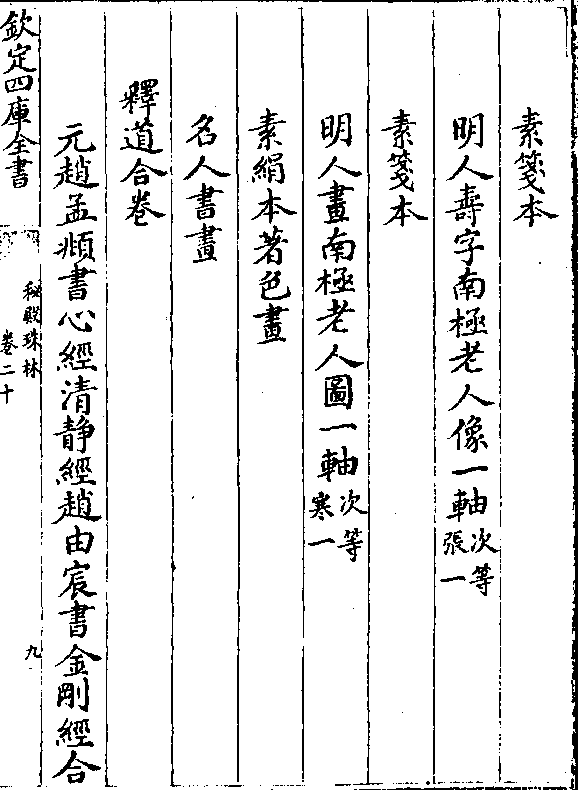 素箋本
明人壽字南極老人像一軸次等張一
素箋本
明人畫南極老人圖一軸次等寒一
素絹本著色畫
名人書畫
釋道合卷
元趙孟頫書心經清静經趙由宸書金剛經合
欽定四庫全書
秘殿珠林
卷二十
九